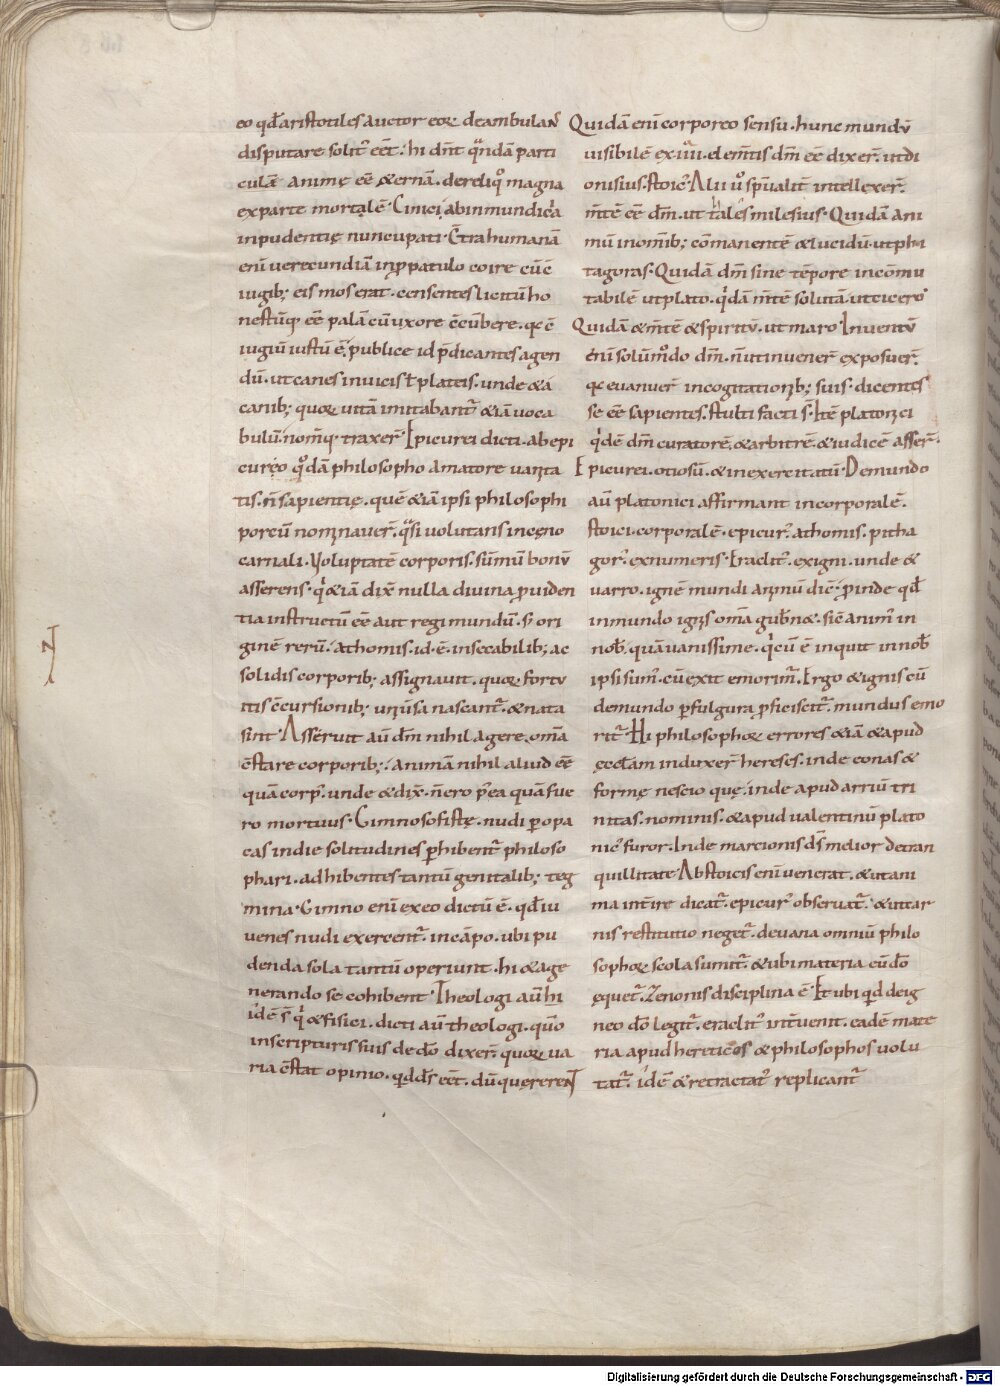 eo qđ aristotiles auctor eoꝝ deambulanſ
disputare solitꝰ eēt. hi dn̄t qͣndā parti
culā animę eē &ernā. de reliqͦ magna
ex parte mortalē. Cinici ab inmundicia
inpudentię nuncupati. Ctra humanā
eni uerecundiā in ꝓpatulo coire cū c̄
iugib; eis mos erat. censentes licitū ho
nestūq; eē palā cū uxore c̄cūbere. qꝛ c̄
iugiū iustū ē. publice id p̄dicantes agen
dū. ut canes in uicis ł plateis. unde & a
canib; quoꝝ uitā imitabantꝰ &iā uoca
bulū. nomq; traxer̄. Epicurei dicti. ab epi
cureo qͦdā philosopho amatore uanita
tis. n̄ sapientię. quē &iā ipsi philosophi
porcū nominauer̄. qͣsi uolutans in cęno
carnali. Voluptatē corporis. sūmū bonū
asserens. qͥ &iā dix̄ nulla diuina ꝓuiden
tia instructū eē aut regi mundū. S; ori
ginē rerū. athomis. id.ē. insecabilib; ac
solidis corporib; assignauit. quoꝝ fortu
itis c̄cursionib; uniūsa nascantꝰ. & nata
sint. Asserunt aū dm̄ nihil agere. omā
c̄stare corporib; animā nihil aliud eē
quā corpꝰ. unde & dix̄. n̄ ero p̄ea quā fue
ro mortuus. Gimnosofistę. nudi ꝑ opa
cas indie solitudines ꝑhibentꝰ philoso
phari. adhibentes tantū genitalib; teg
mina. Gimno eni ex eo dictū ē. qđ iu
uenes nudi exercentꝰ. in cāpo. ubi pu
denda sola tantū operiunt. hi & a ge
nerando se cohibent. Theologi aū hi
idē s̄ qͥ & fisici. dicti aū theologi. qm̄o
in scripturis suis de do dixer̄. quoꝝ ua
ria c̄stat opinio. quid ds̄ eēt. dū quęrerenꝉ
Quidā eni corporeo sensu. hunc mundū
uisibilē ex .iiii. elemn̄tis dm̄ eē dixer̄. ut di
onisius. stoicꝰ. Alii ū spūaliꝉ intellexer̄.
mn̄tē eē dm̄. ut tales milesius. Quidā ani
mū in omīb; cōmanentē & lucidū. ut phi
tagoras. Quidā dm̄ sine tēpore incōmu
tabilē ut plato. qͥdā mn̄tē solutā. ut cicero
Quidā & mn̄tē & spiritū. ut maro. Inuentū
eni solūmͦdo dm̄. n̄ ut inuener̄ exposuer̄.
qꝛ euanuer̄ in cogitationib; suis. dicentes
se eē sapientes. stulti facti s̄. Itē platonici
qͥdē dm̄ curatorē. & arbitrē. & iudicē asser̄.
Epicurei. otiosū. & inexercitatū. De mundo
aū platonici affirmant incorporalē.
stoici. corporalē. epicurꝰ. athomis. pitha
gorꝰ. ex numeris. Eraclitꝰ. ex igni. unde &
uarro. ignē mundi animū dic̄. ꝓinde qđ
in mundo ignis om̄a gub̄n&. sic animꝰ in
nob̄. quā uanissime. qͥ cū ē inquit in nob̄
ipsi sumꝰ. cū exit emorimꝰ. Ergo & ignis cū
de mundo ꝑ fulgura ꝓficiscitꝰ. mundus emo
ritꝰ. Hi philosophoꝝ errores &iā & apud
ęcclam induxer̄ hereses. inde eonas &
formę nescio quę. inde apud arriū tri
nitas. nominis. & apud ualentinū plato
nicꝰ furor. Inde marcionis ds̄ melior de tran
quillitate. Ab stoicis eni uenerat. & ut ani
ma int̄ire dicatꝰ. epicurꝰ obseruatꝰ. & ut car
nis restitutio negetꝰ. de uana omniū philo
sophoꝝ scola sumitꝰ. & ubi materia cū do
ęquetꝰ. Zenonis disciplina ē. Et ubi quid de ig
neo do legitꝰ. eraclitꝰ int̄uenit. eadē mate
ria apud hereticos & philosophos uolu
tatꝰ. idē & retractatꝰ replicantꝰ
Digitalisierung gefördert durch die Deutsche Forschungsgemeinschaft - DFG